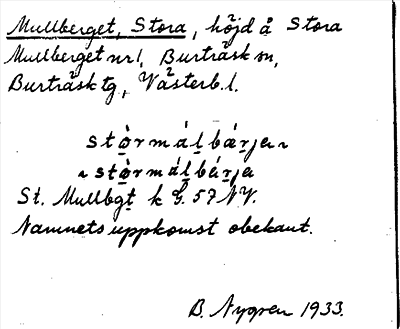 Mullberget, Stora, höjd å Stora
Mullberget nr 1, Burträsk sn,
Burträsk tg, Västerb. l.
stò̱rmáḻbæ̀rjen
stò̱rmáḻbárja
St. Mullbgt k G. 57 NV.
Namnets uppkomst obekant.
B. Nygren 1933.